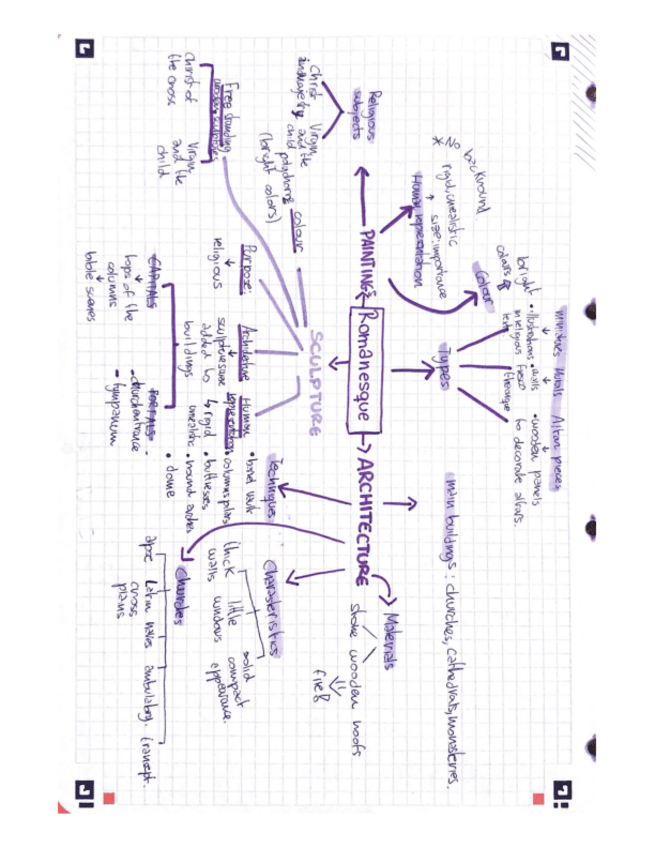 Romanesque
PAINTING
Religious
subjects
Christ
Virgin
and the
child
Human representation
size: importance
rigid, unrealistic
* No background
Colour
bright
colors
Types
minitures
• illustrations
in religious
texts
Murals
• walls
fresco
Altar pieces
• wooden panels
to decorate altars.
SCULPTURE
Free standing
wooden sculptures
Christ of
the cross
Virgin
and the
child
colour
polychrome
(bright colors)
Purpose:
religious
Architecture
sculptures are
added to
buildings
CAPITALS
tops of the
columns
bible scenes
PORTALS
- church entrance
- tympanum
Human
representation
rigid
unrealistic
ARCHITECTURE
main buildings: churches, cathedrals, monasteries.
Materials
stone
wooden roofs
fire
Techniques
• barrel vault
• columns, pillars
• buttresses
• round arches
• dome
Characteristics
thick
walls
little
windows
solid
compact
appearance.
Churches
apse
Latin
cross
plans
naves
ambulatory.
transept.